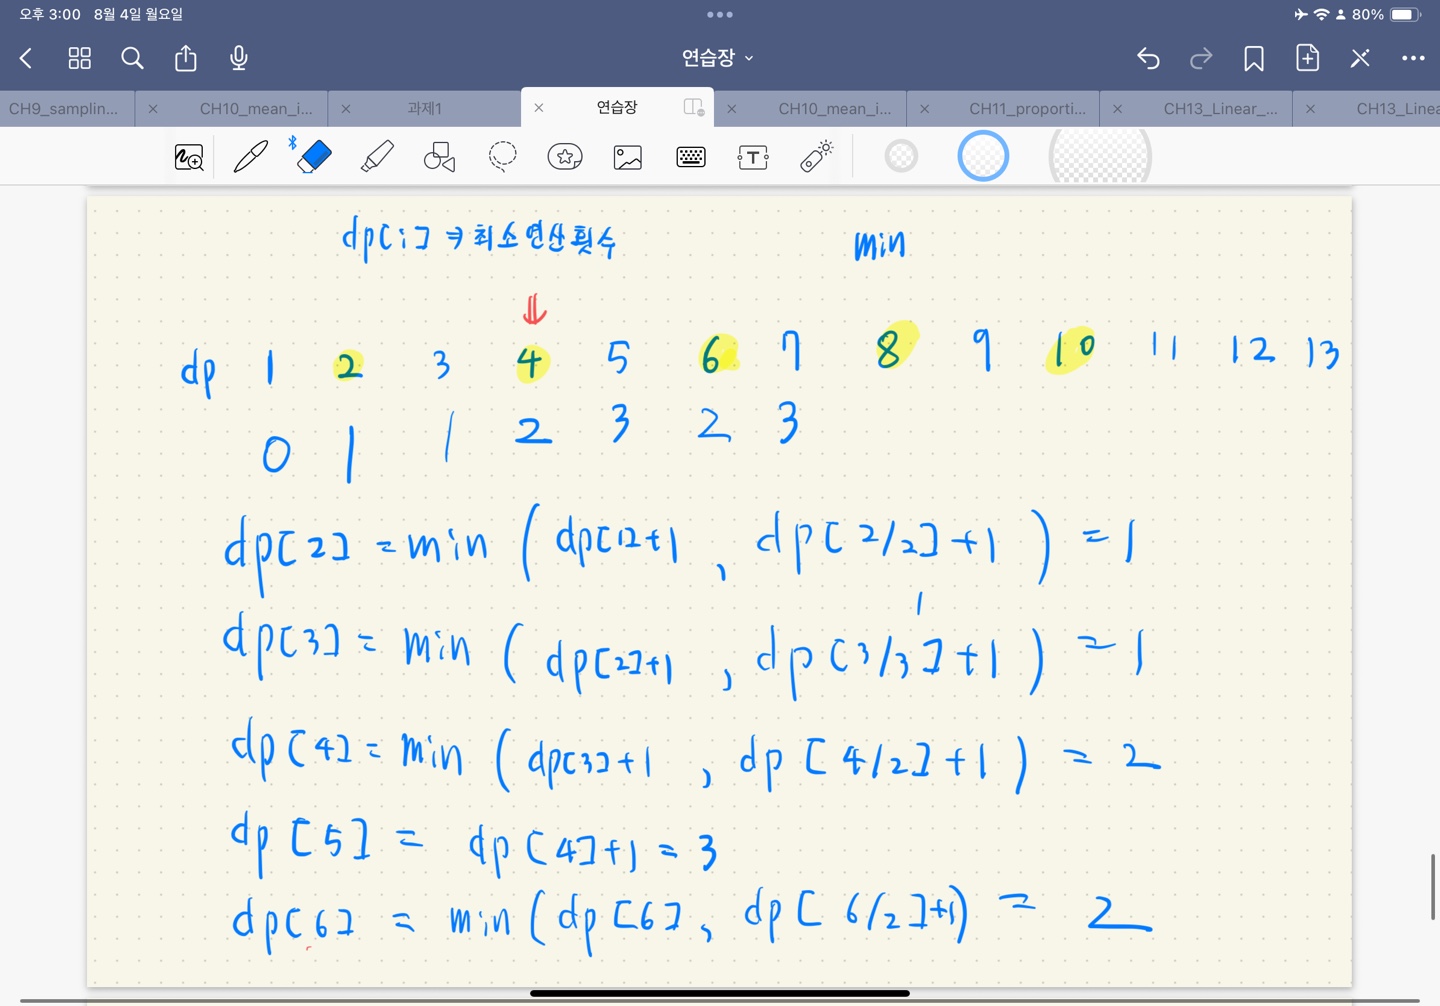 오후 3:00 8월 4일 월요일 80%
연습장
CH9_samplin... CH10_mean_i... 과제1 연습장 CH10_mean_i... CH11_proporti... CH13_Linear_... CH13_Linea
T
dp[i] → 최소연산횟수 min
dp 1 2 3 4 5 6 7 8 9 10 11 12 13
0 1 1 2 3 2 3
dp[2] = min ( dp[1]+1 , dp[2/2]+1 ) = 1
1
dp[3] = min ( dp[2]+1 , dp[3/3]+1 ) = 1
dp[4] = min ( dp[3]+1 , dp[4/2]+1 ) = 2
dp[5] = dp[4]+1 = 3
dp[6] = min ( dp[6] , dp[6/2]+1 ) = 2